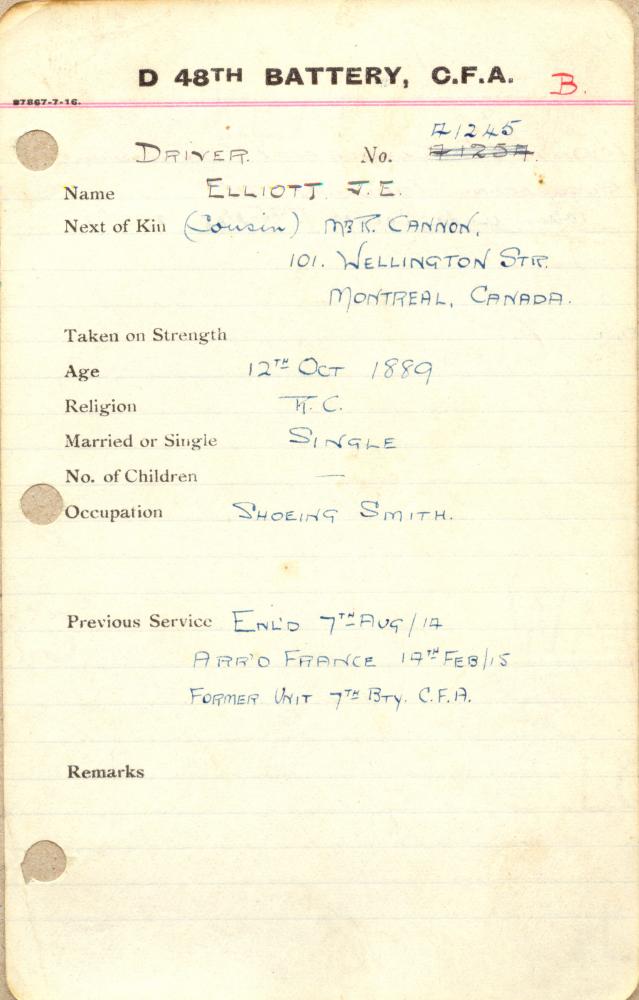 D 48TH BATTERY, C.F.A. B.
87867-7-16.
41245
DRIVER. No. 41254.
Name ELLIOTT J.E.
Next of Kin (Cousin) MR R. CANNON,
101. WELLINGTON STR.
MONTREAL, CANADA.
Taken on Strength
Age 12TH OCT 1889
Religion R.C.
Married or Single SINGLE
No. of Children —
Occupation SHOEING SMITH.
Previous Service ENL'D 7TH AUG/14
ARR'D FRANCE 14TH FEB/15
FORMER UNIT 7TH BTY. C.F.A.
Remarks